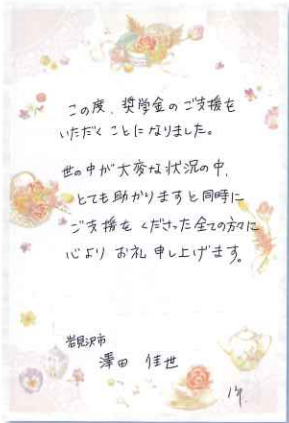 この度、奨学金のご支援を
いただくことになりました。
世の中が大変な状況の中、
とても助かりますと同時に
ご支援をくださった全ての方々に
心よりお礼申し上げます。
岩見沢市
澤田 佳世